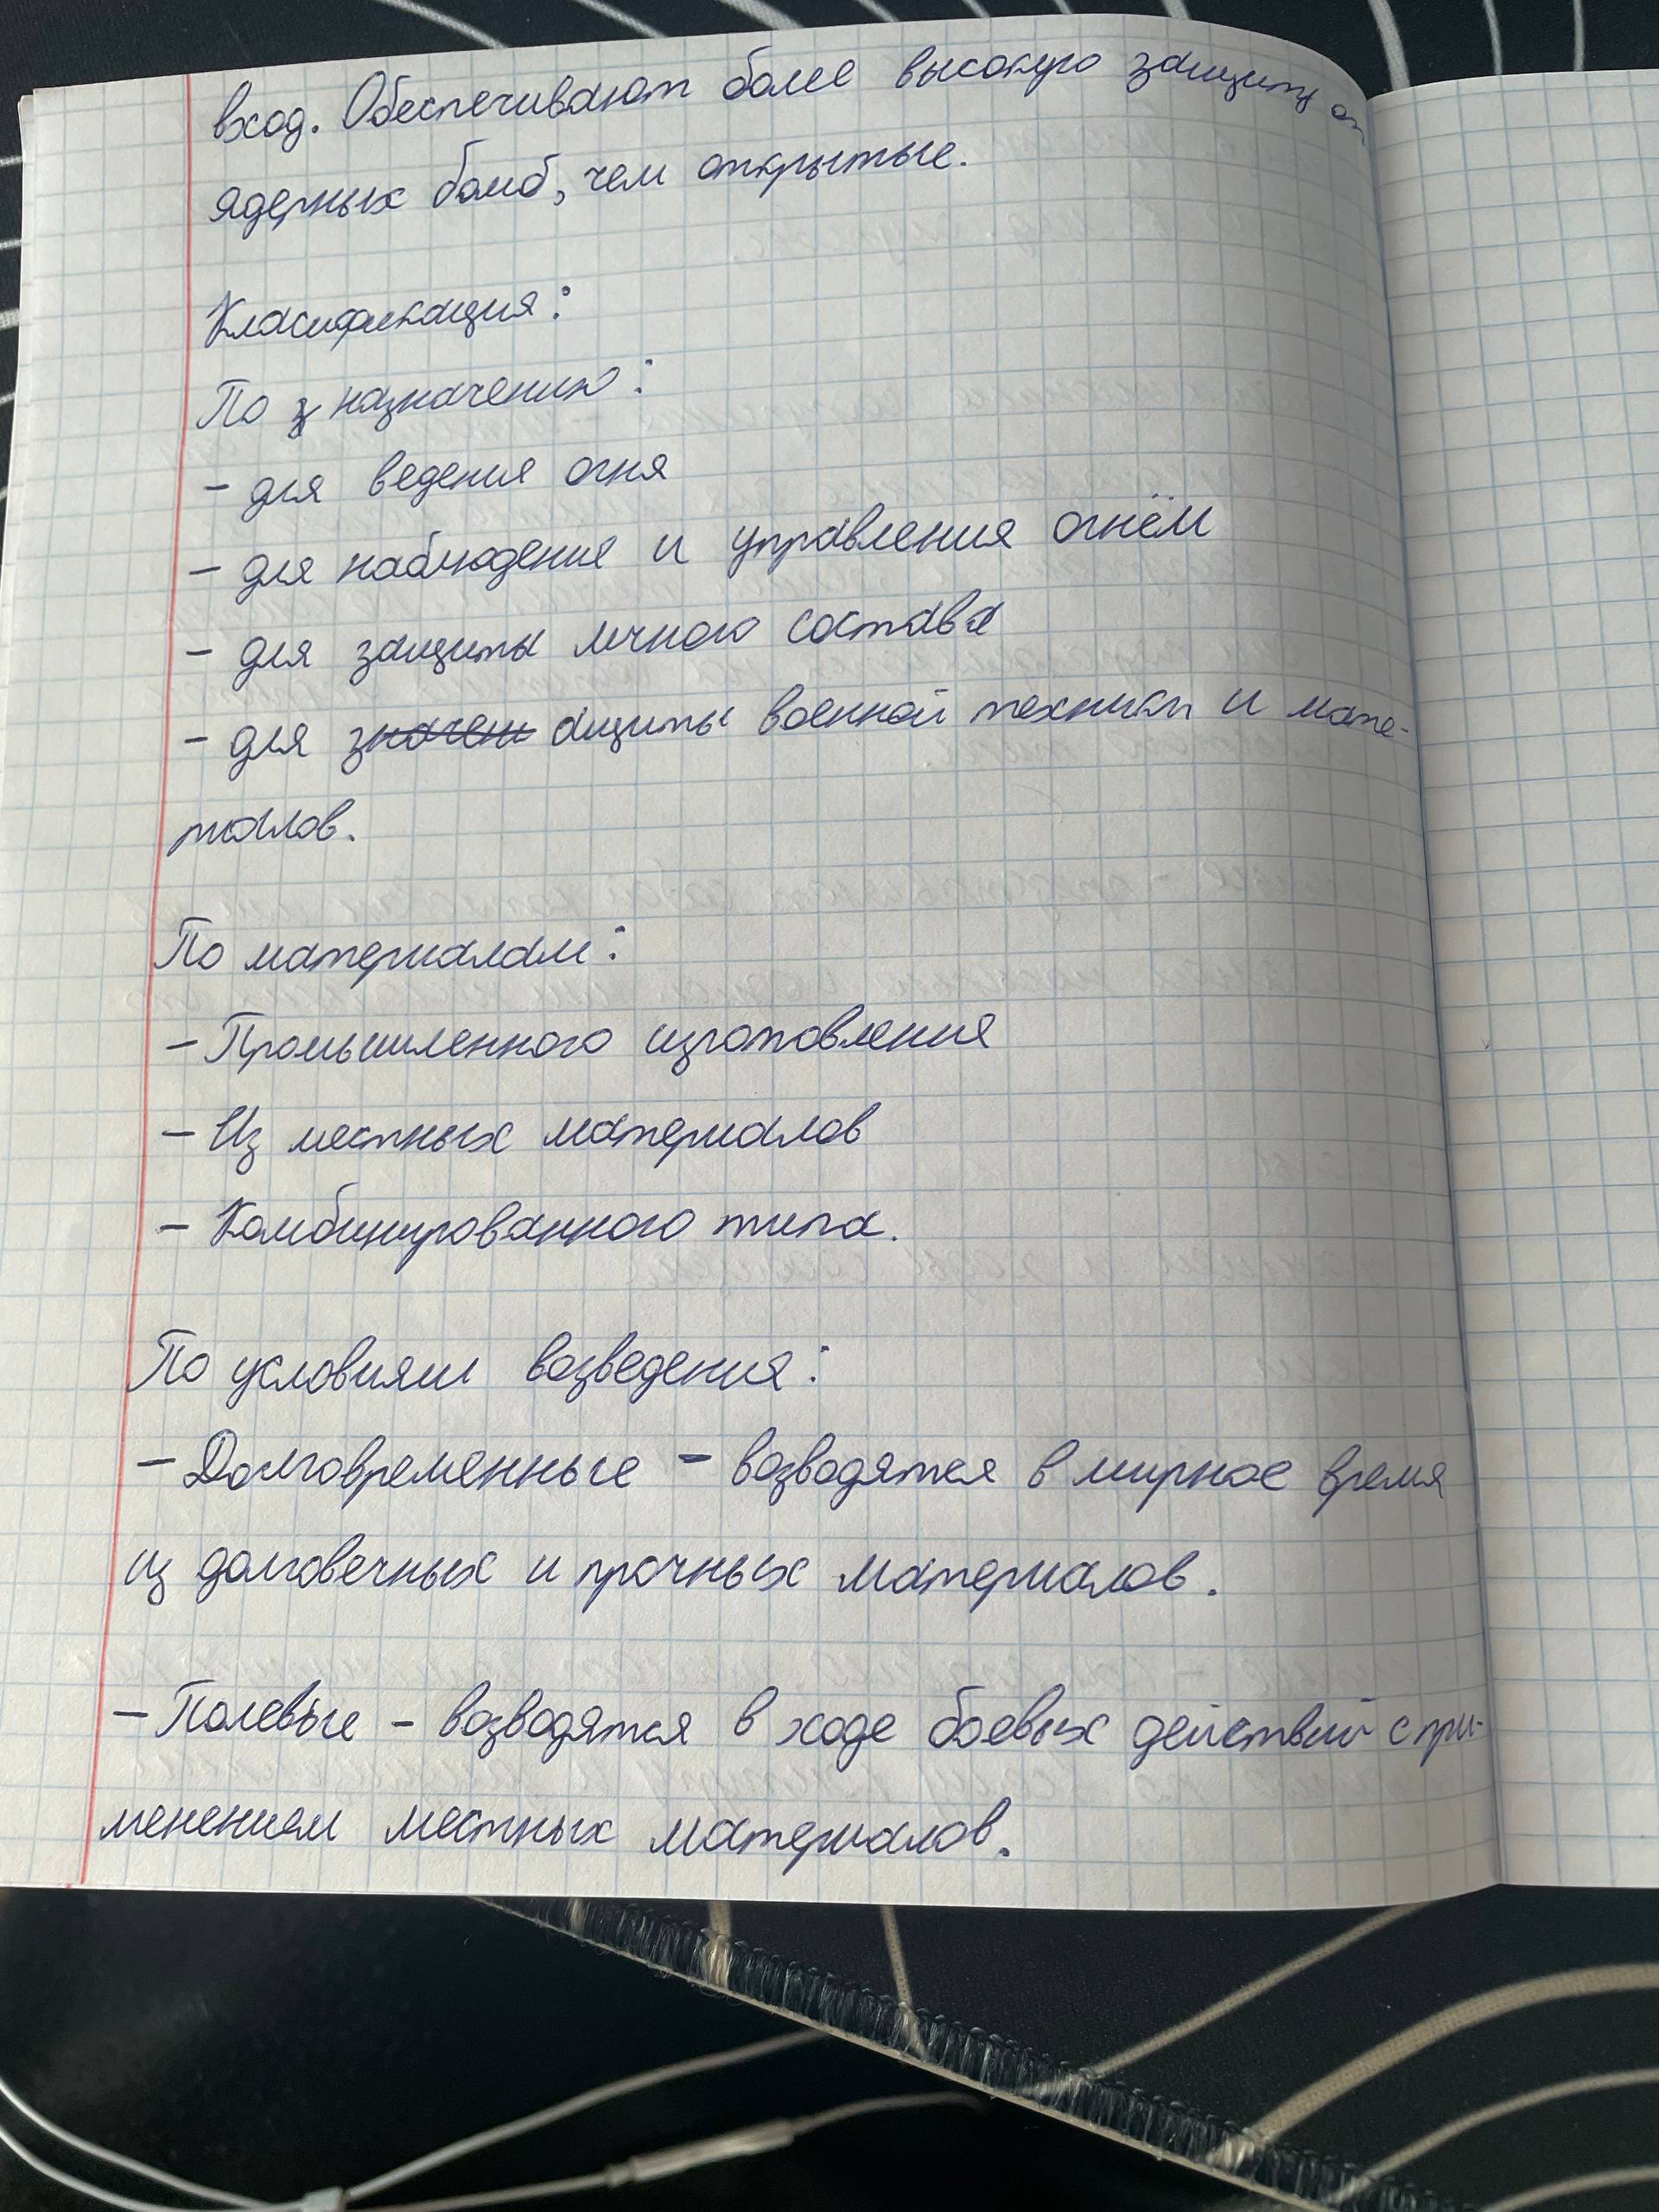 вход. Обеспечивают более высокую защиту от
ядерных бомб, чем открытые.
Класификация:
По назначению:
- для ведения огня
- для наблюдения и управления огнём
- для защиты личного состава
- для защиты военной техники и мате-
риалов.
По материалам:
- Промышленного изготовления
- Из местных материалов
- Комбинированного типа.
По условиям возведения:
- Долговременные - возводятся в мирное время
из долговечных и прочных материалов.
- Полевые - возводятся в ходе боевых действий с при-
менением местных материалов.